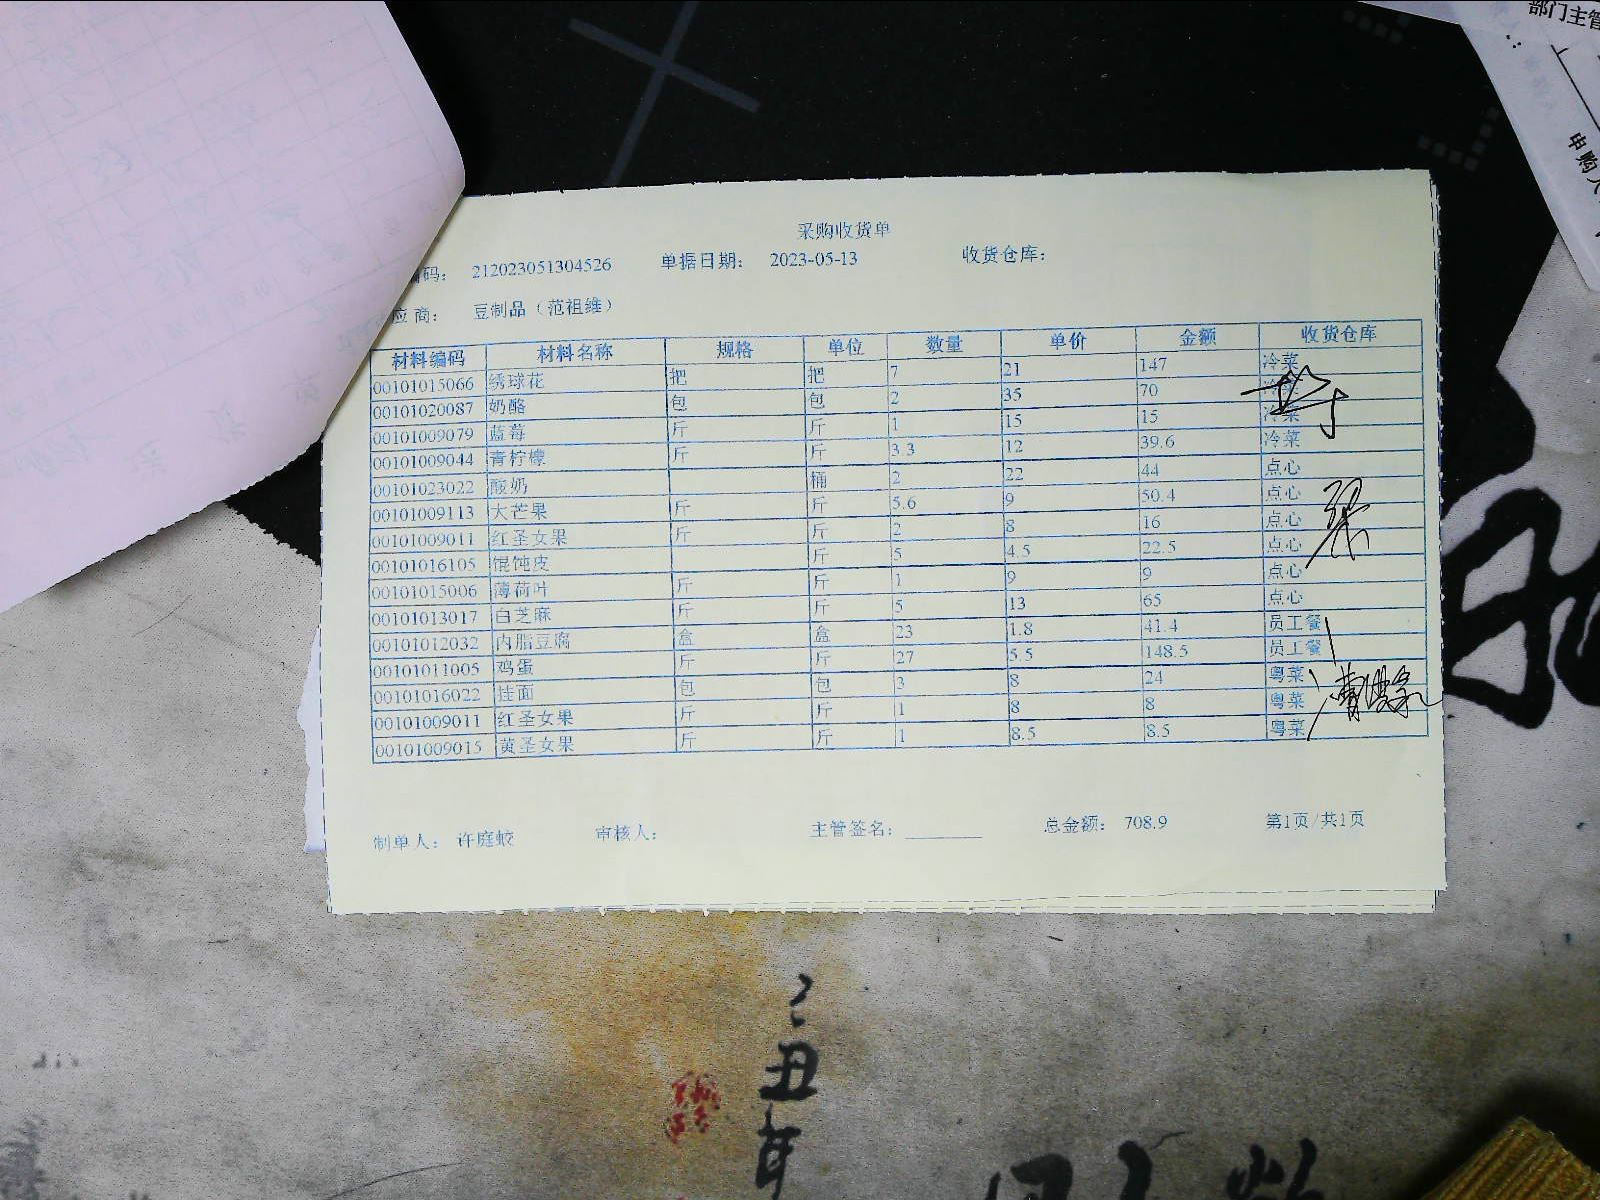 部门主管
申购人
采购收货单
编码： 212023051304526 单据日期： 2023-05-13 收货仓库：
应商： 豆制品（范祖维）
材料编码 材料名称 规格 单位 数量 单价 金额 收货仓库
00101015066 绣球花 把 把 7 21 147 冷菜
00101020087 奶酪 包 包 2 35 70 冷菜
00101009079 蓝莓 斤 斤 1 15 15 冷菜
00101009044 青柠檬 斤 斤 3.3 12 39.6 冷菜
00101023022 酸奶 桶 2 22 44 点心
00101009113 大芒果 斤 斤 5.6 9 50.4 点心
00101009011 红圣女果 斤 斤 2 8 16 点心
00101016105 馄饨皮 斤 5 4.5 22.5 点心
00101015006 薄荷叶 斤 斤 1 9 9 点心
00101013017 白芝麻 斤 斤 5 13 65 点心
00101012032 内脂豆腐 盒 盒 23 1.8 41.4 员工餐
00101011005 鸡蛋 斤 斤 27 5.5 148.5 员工餐
00101016022 挂面 包 包 3 8 24 粤菜
00101009011 红圣女果 斤 斤 1 8 8 粤菜
00101009015 黄圣女果 斤 斤 1 8.5 8.5 粤菜
制单人： 许庭蛟 审核人： 主管签名： 总金额： 708.9 第1页/共1页
丑年